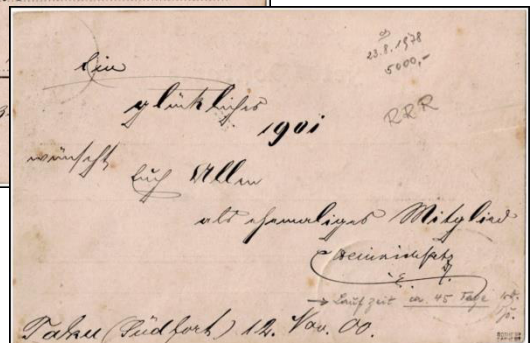 Ein
23.8.1978
5000,-
glückliches
1901
RRR
wünscht
Euch Allen
als ehemaliges Mitglied
→ Laufzeit ca. 45 Tage
Taku (Südfort) 12. Nov. 00.